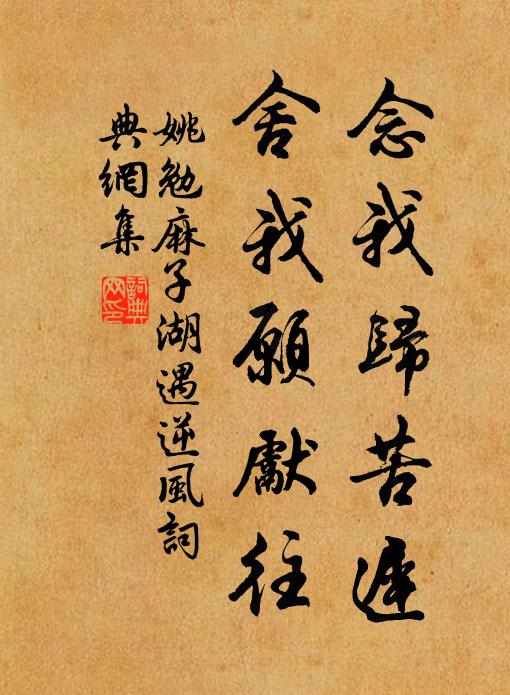 念我歸苦遲
舍我願獻往
姚勉麻子湖遇逆風詞
典網集
詞典網印